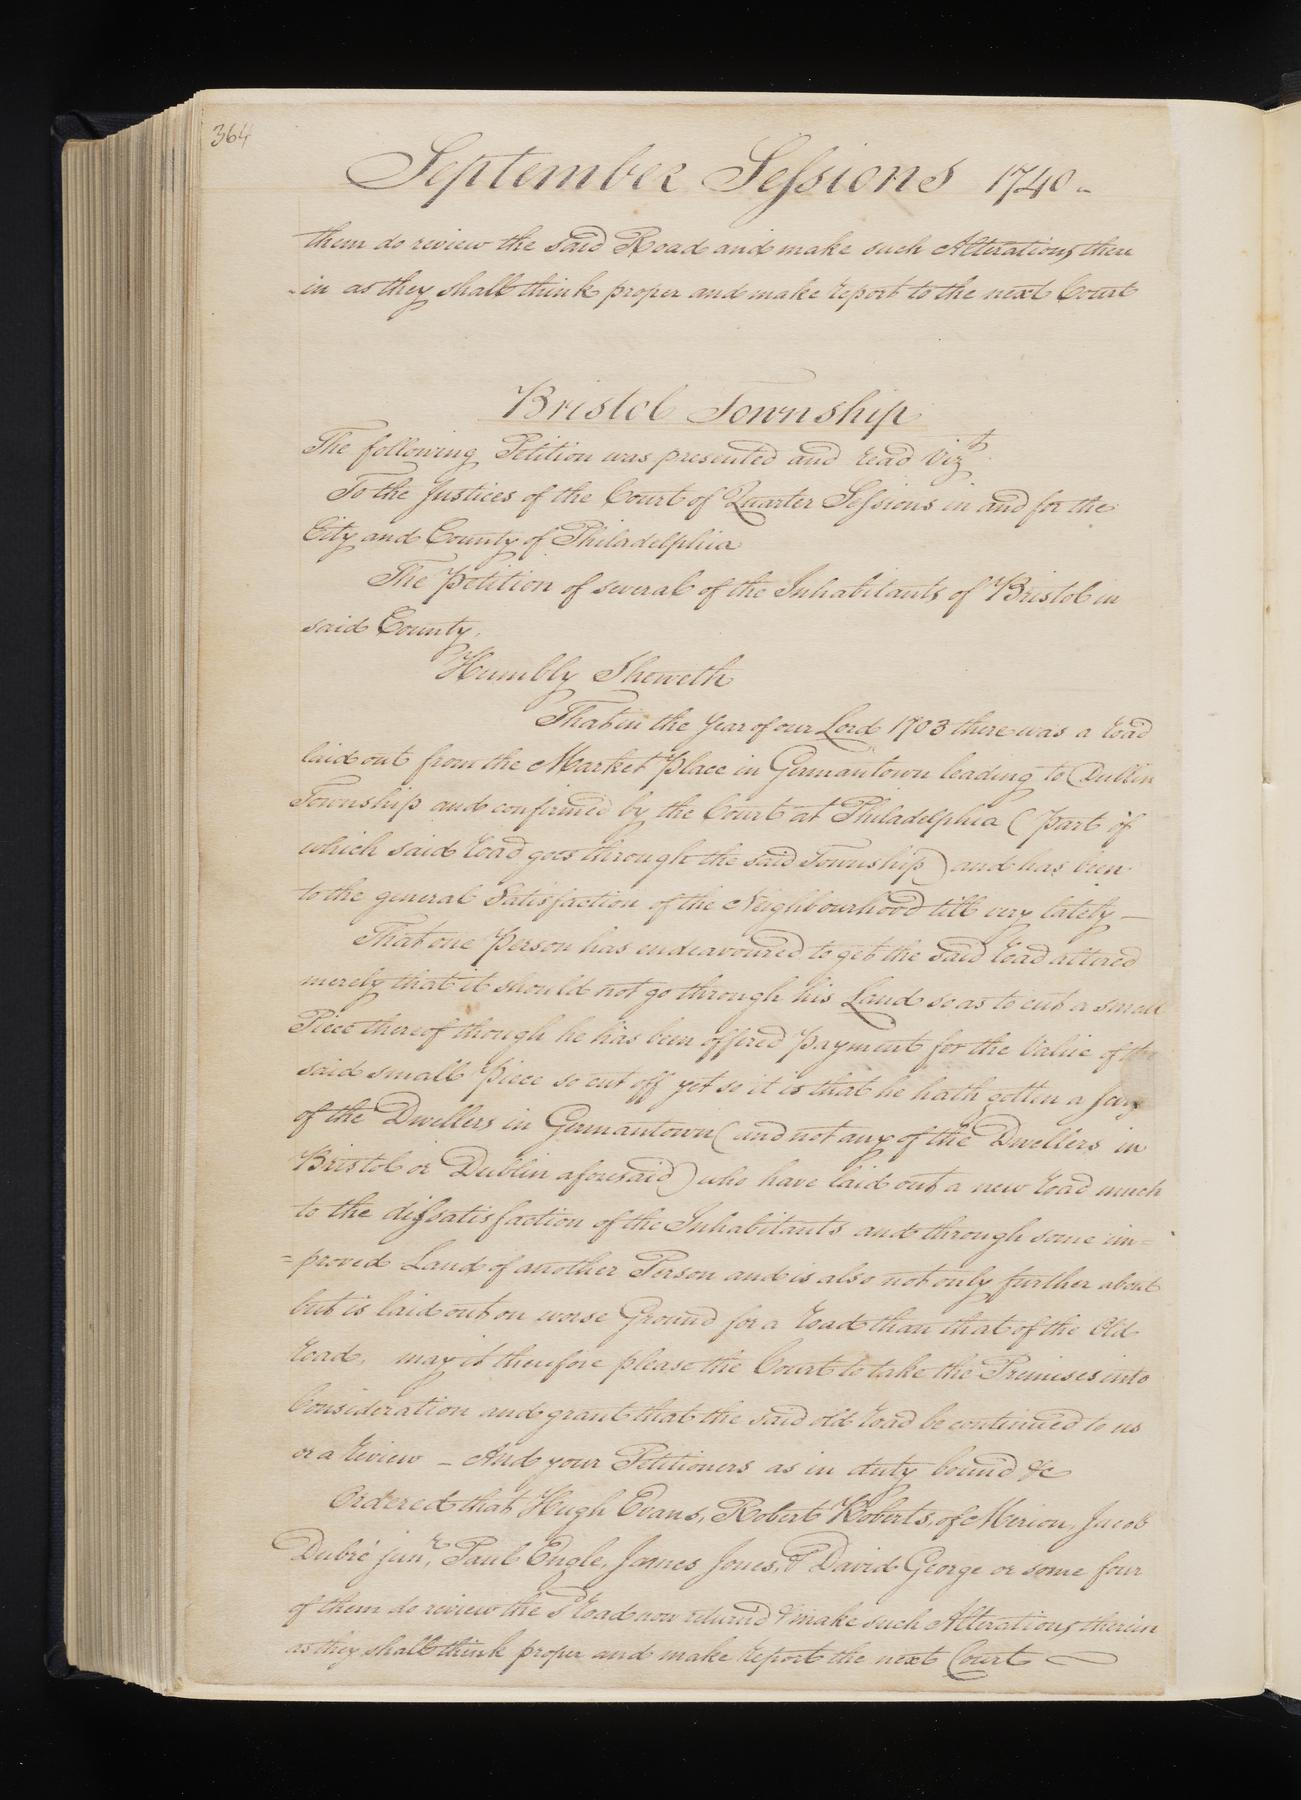 364
September Sessions 1740
them do review the said Road and make such Alterations there
-in as they shall think proper and make report to the next Court
Bristol Township
The following Petition was presented and read Vizt
To the Justices of the Court of Quarter Sessions in and for the
City and County of Philadelphia
The Petition of several of the Inhabitants of Bristol in
said County.
Humbly Sheweth
That in the Year of our Lord 1703 there was a road
laid out from the Market Place in Germantown leading to Dublin
Township and confirmed by the Court at Philadelphia (Part of
which said road goes through the said Township) and has been
to the general Satisfaction of the Neighbourhood till very lately —
That one Person has endeavoured to get the said road altered
merely that it should not go through his Land so as to cut a small
Piece thereof though he has been offered Payment for the Value of the
said small Piece so cut off yet so it is that he hath gotten a few
of the Dwellers in Germantown (and not any of the Dwellers in
Bristol or Dublin aforesaid) who have laid out a new road much
to the dissatisfaction of the Inhabitants and through some im=
=proved Land of another Person and is also not only further about
but is laid out on worse Ground for a road than that of the Old
road, may it therefore please the Court to take the Premises into
Consideration and grant that the said old road be continued to us
or a review – And your Petitioners as in duty bound &c
Ordered that Hugh Evans, Robert Roberts, of Merion, Jacob
Dubré junr, Paul Engle, James Jones, & David George or some four
of them do review the sd road now returned & make such Alterations therein
as they shall think proper and make report the next Court